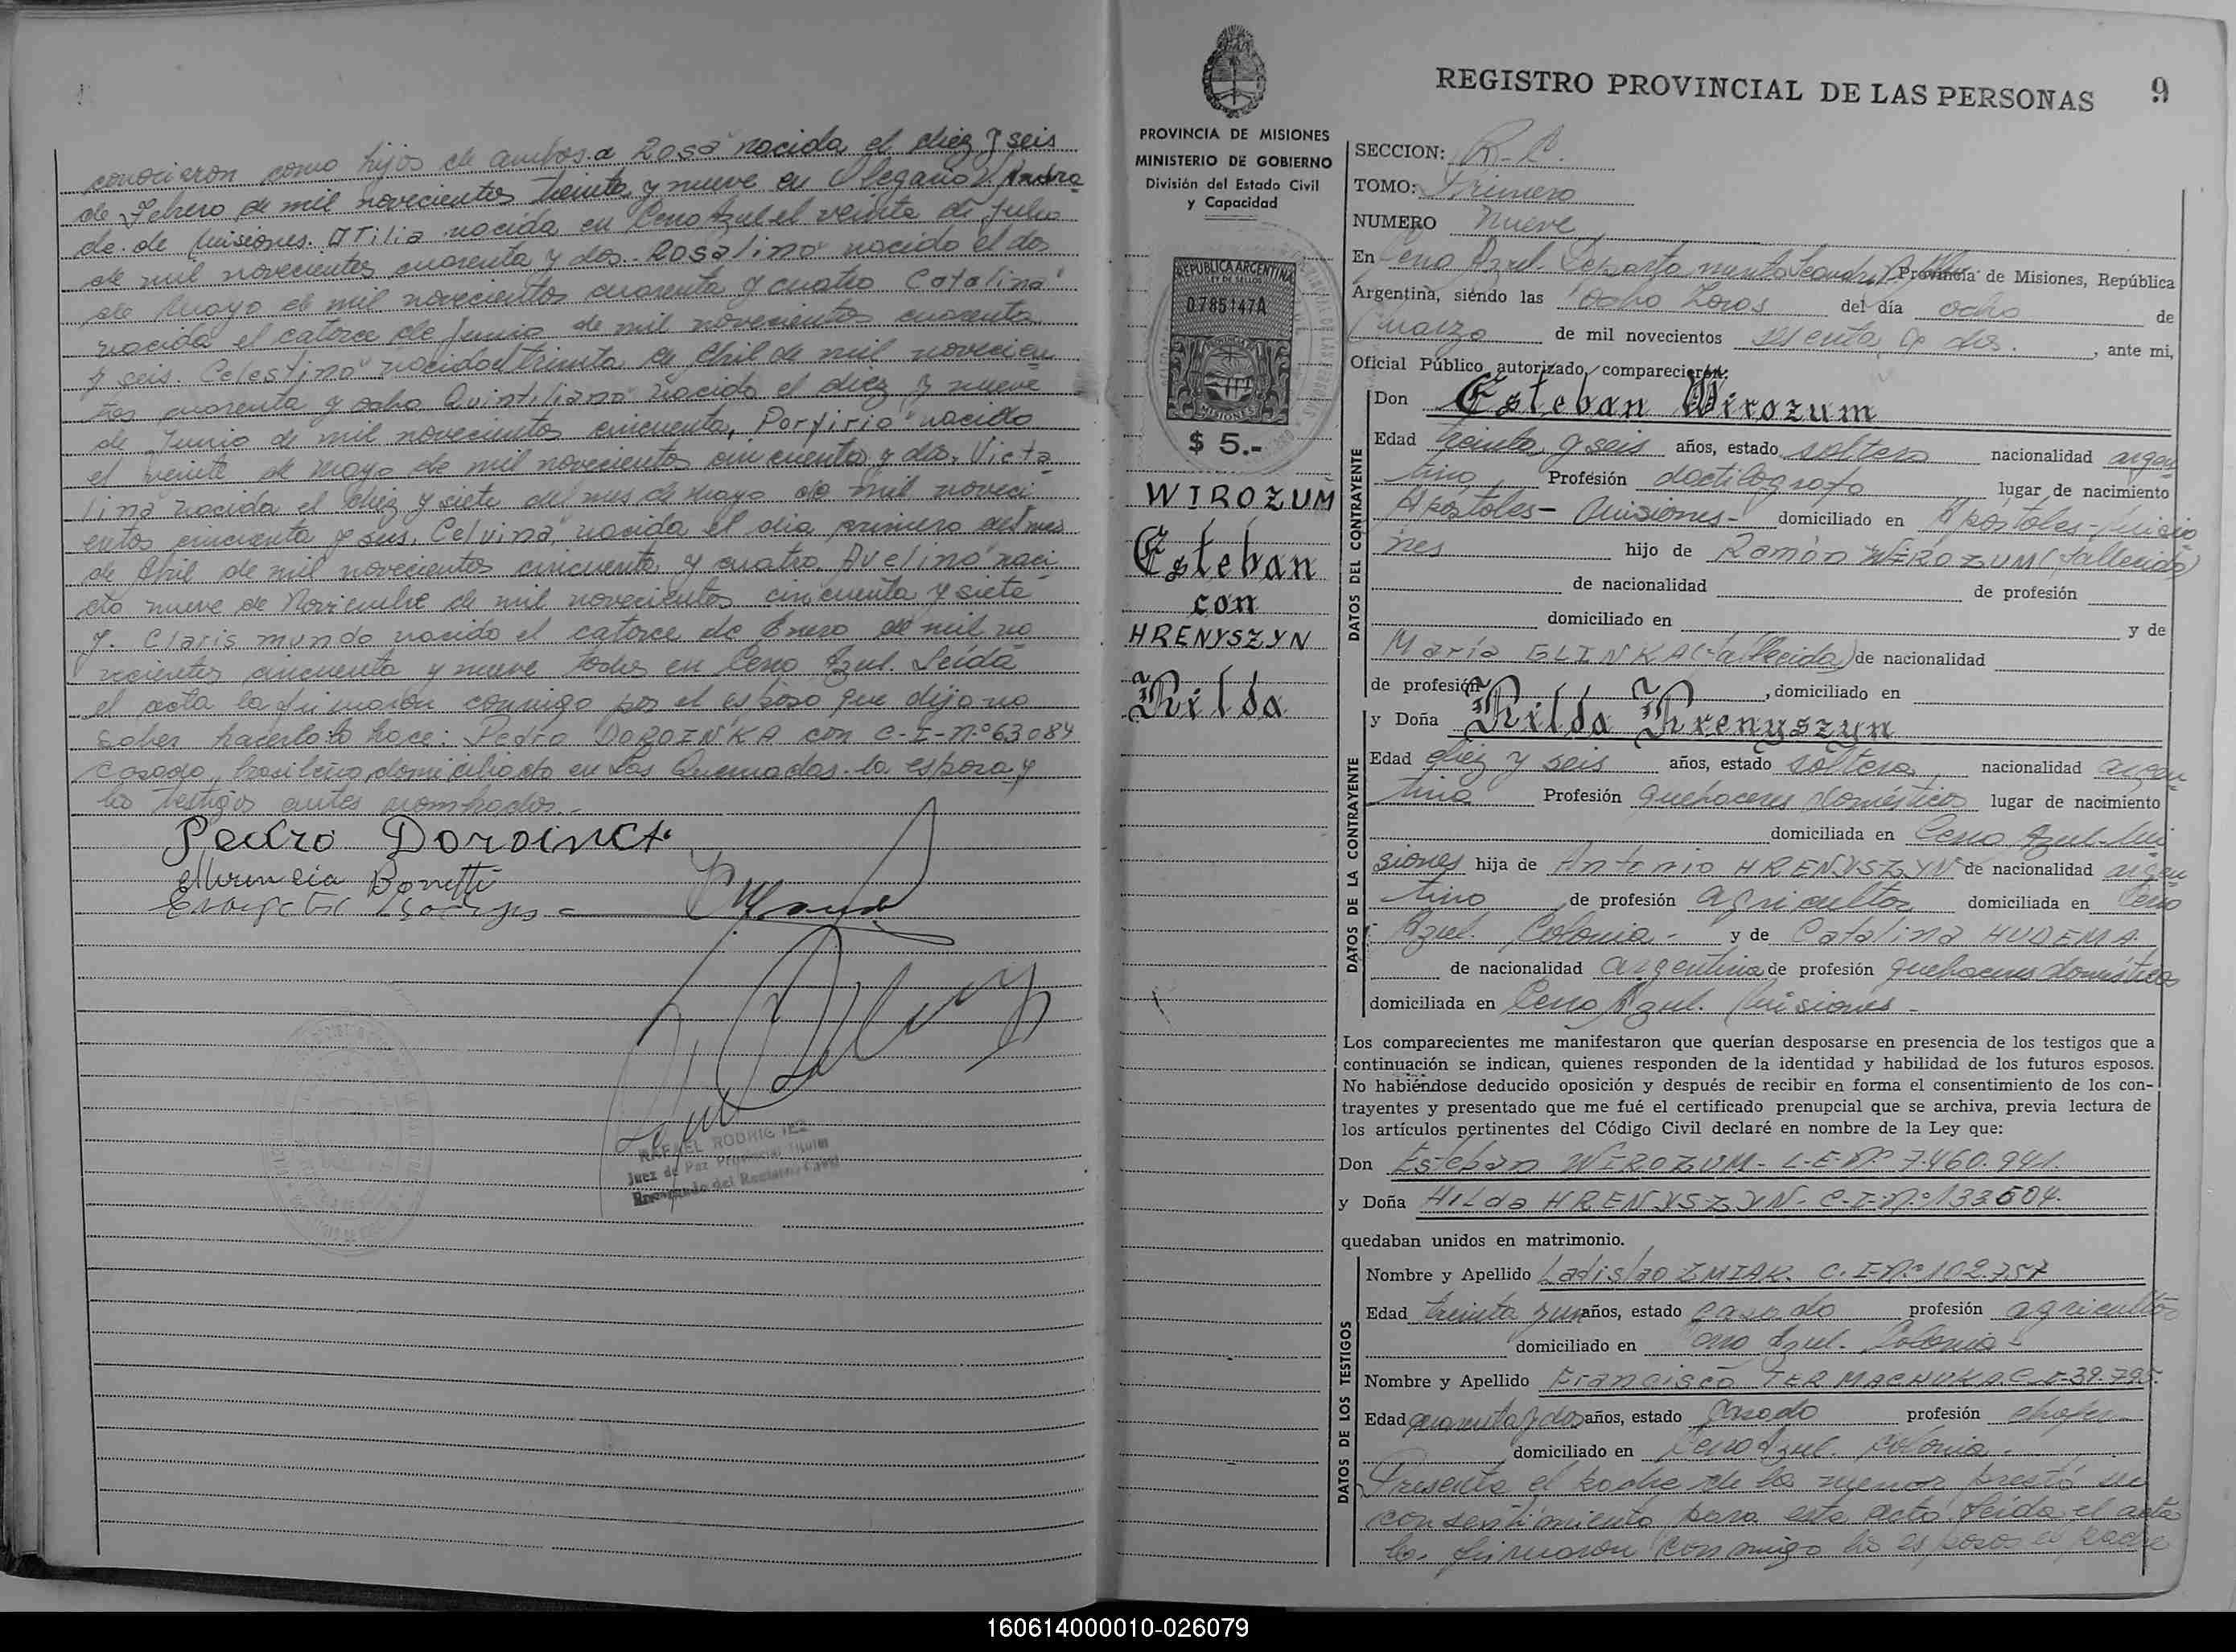 conocieron como hijos de ambos a Rosa nacida el diez y seis
de Febrero de mil novecientos treinta y nueve en Olegario V. Andra
de de Misiones. Otilia nacida en Cerro Azul el veinte de Julio
de mil novecientos cuarenta y dos. Rosalino nacido el dos
de Mayo de mil novecientos cuarenta y cuatro Catalina
nacida el catorce de Junio de mil novecientos cuarenta
y seis. Celestino nacido el treinta de Abril de mil novecien
tos cuarenta y ocho Quintiliano nacido el diez y nueve
de Junio de mil novecientos cincuenta, Porfirio nacido
el veinte de mayo de mil novecientos cincuenta y dos, Victa
lina nacida el diez y siete del mes de mayo de mil noveci
entos cincuenta y seis, Celvina nacida el dia primero del mes
de Abril de mil novecientos cincuenta y cuatro Avelino naci
do nueve de Noviembre de mil novecientos cincuenta y siete
y. Clarismundo nacido el catorce de Enero de mil no
vecientos cincuenta y nueve todos en Cerro Azul. Leída
el acta la firmaron conmigo por el esposo que dijo no
saber hacerlo lo hace: Pedro DOROINKA con C-I-n.º 63084
casado, brasileño, domiciliado en Las Quemadas. la esposa y
los testigos antes nombrados.-
Pedro Doroinca
RAFAEL RODRIGUEZ
Juez de Paz Provincial Titular
Encargado del Registro Civil
PROVINCIA DE MISIONES
MINISTERIO DE GOBIERNO
División del Estado Civil
y Capacidad
REPUBLICA ARGENTINA
LEY DE SELLOS
0785147A
MISIONES
$ 5.-
WIROZUM
Esteban
con
HRENYSZYN
Hilda
REGISTRO PROVINCIAL DE LAS PERSONAS 9
SECCION: R-C.
TOMO: Primero
NUMERO Nueve
En Cerro Azul. Departamento Leandro N. Provincia de Misiones, República
Argentina, siendo las Ocho horas del día ocho de
Marzo de mil novecientos sesenta y dos. , ante mi,
Oficial Público autorizado, comparecieron:
DATOS DEL CONTRAYENTE
Don Esteban Wirozum
Edad treinta y seis años, estado soltero nacionalidad argen
tino, Profesión dactilografo lugar de nacimiento
Apóstoles- Misiones- domiciliado en Apóstoles-Misio
nes hijo de Ramón WIROZUM (fallecido)
de nacionalidad de profesión
domiciliado en y de
María GLINKA (fallecida) de nacionalidad
de profesión , domiciliado en
DATOS DE LA CONTRAYENTE
y Doña Hilda Hrenyszyn
Edad diez y seis años, estado soltera, nacionalidad argen
tina Profesión quehaceres domésticos lugar de nacimiento
domiciliada en Cerro Azul-Mi
siones hija de Antonio HRENYSZYN de nacionalidad argen
tino de profesión agricultor domiciliada en Cerro
Azul. Colonia- y de Catalina HUDEMA
de nacionalidad argentina de profesión quehaceres domésticos
domiciliada en Cerro Azul. Misiones-
Los comparecientes me manifestaron que querían desposarse en presencia de los testigos que a
continuación se indican, quienes responden de la identidad y habilidad de los futuros esposos.
No habiéndose deducido oposición y después de recibir en forma el consentimiento de los con-
trayentes y presentado que me fué el certificado prenupcial que se archiva, previa lectura de
los artículos pertinentes del Código Civil declaré en nombre de la Ley que:
Don Esteban WIROZUM- L-E-nº 7.460.941.
y Doña HILda HRENYSZYN- C-I-n.º 133.604.
quedaban unidos en matrimonio.
DATOS DE LOS TESTIGOS
Nombre y Apellido Ladislao ZMIAK. C. I-nº 102.757
Edad treinta y un años, estado casado profesión agricultor
domiciliado en Cerro Azul. Colonia-
Nombre y Apellido Francisco TERMACHUKA C-I-39.795.
Edad cuarenta y dos años, estado Casado profesión chofer
domiciliado en Cerro Azul. Colonia.
Presente el padre de la menor prestó su
consentimiento para este acto Leída el acta
la firmaron conmigo los esposos el padre
160614000010-026079